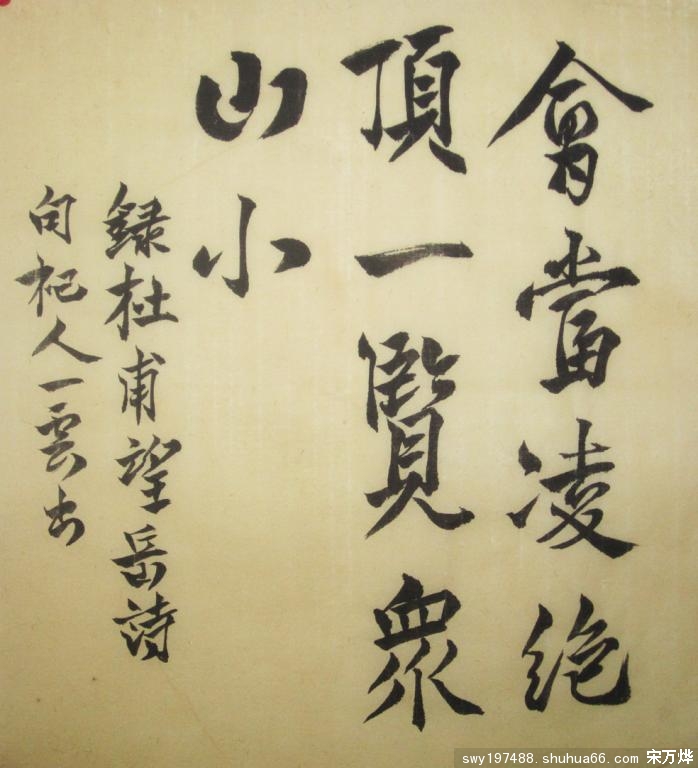 會當凌絶
頂一覽衆
山小
録杜甫望岳詩
句杞人一雲书
swy197488.shuhua66.com 宋万烨